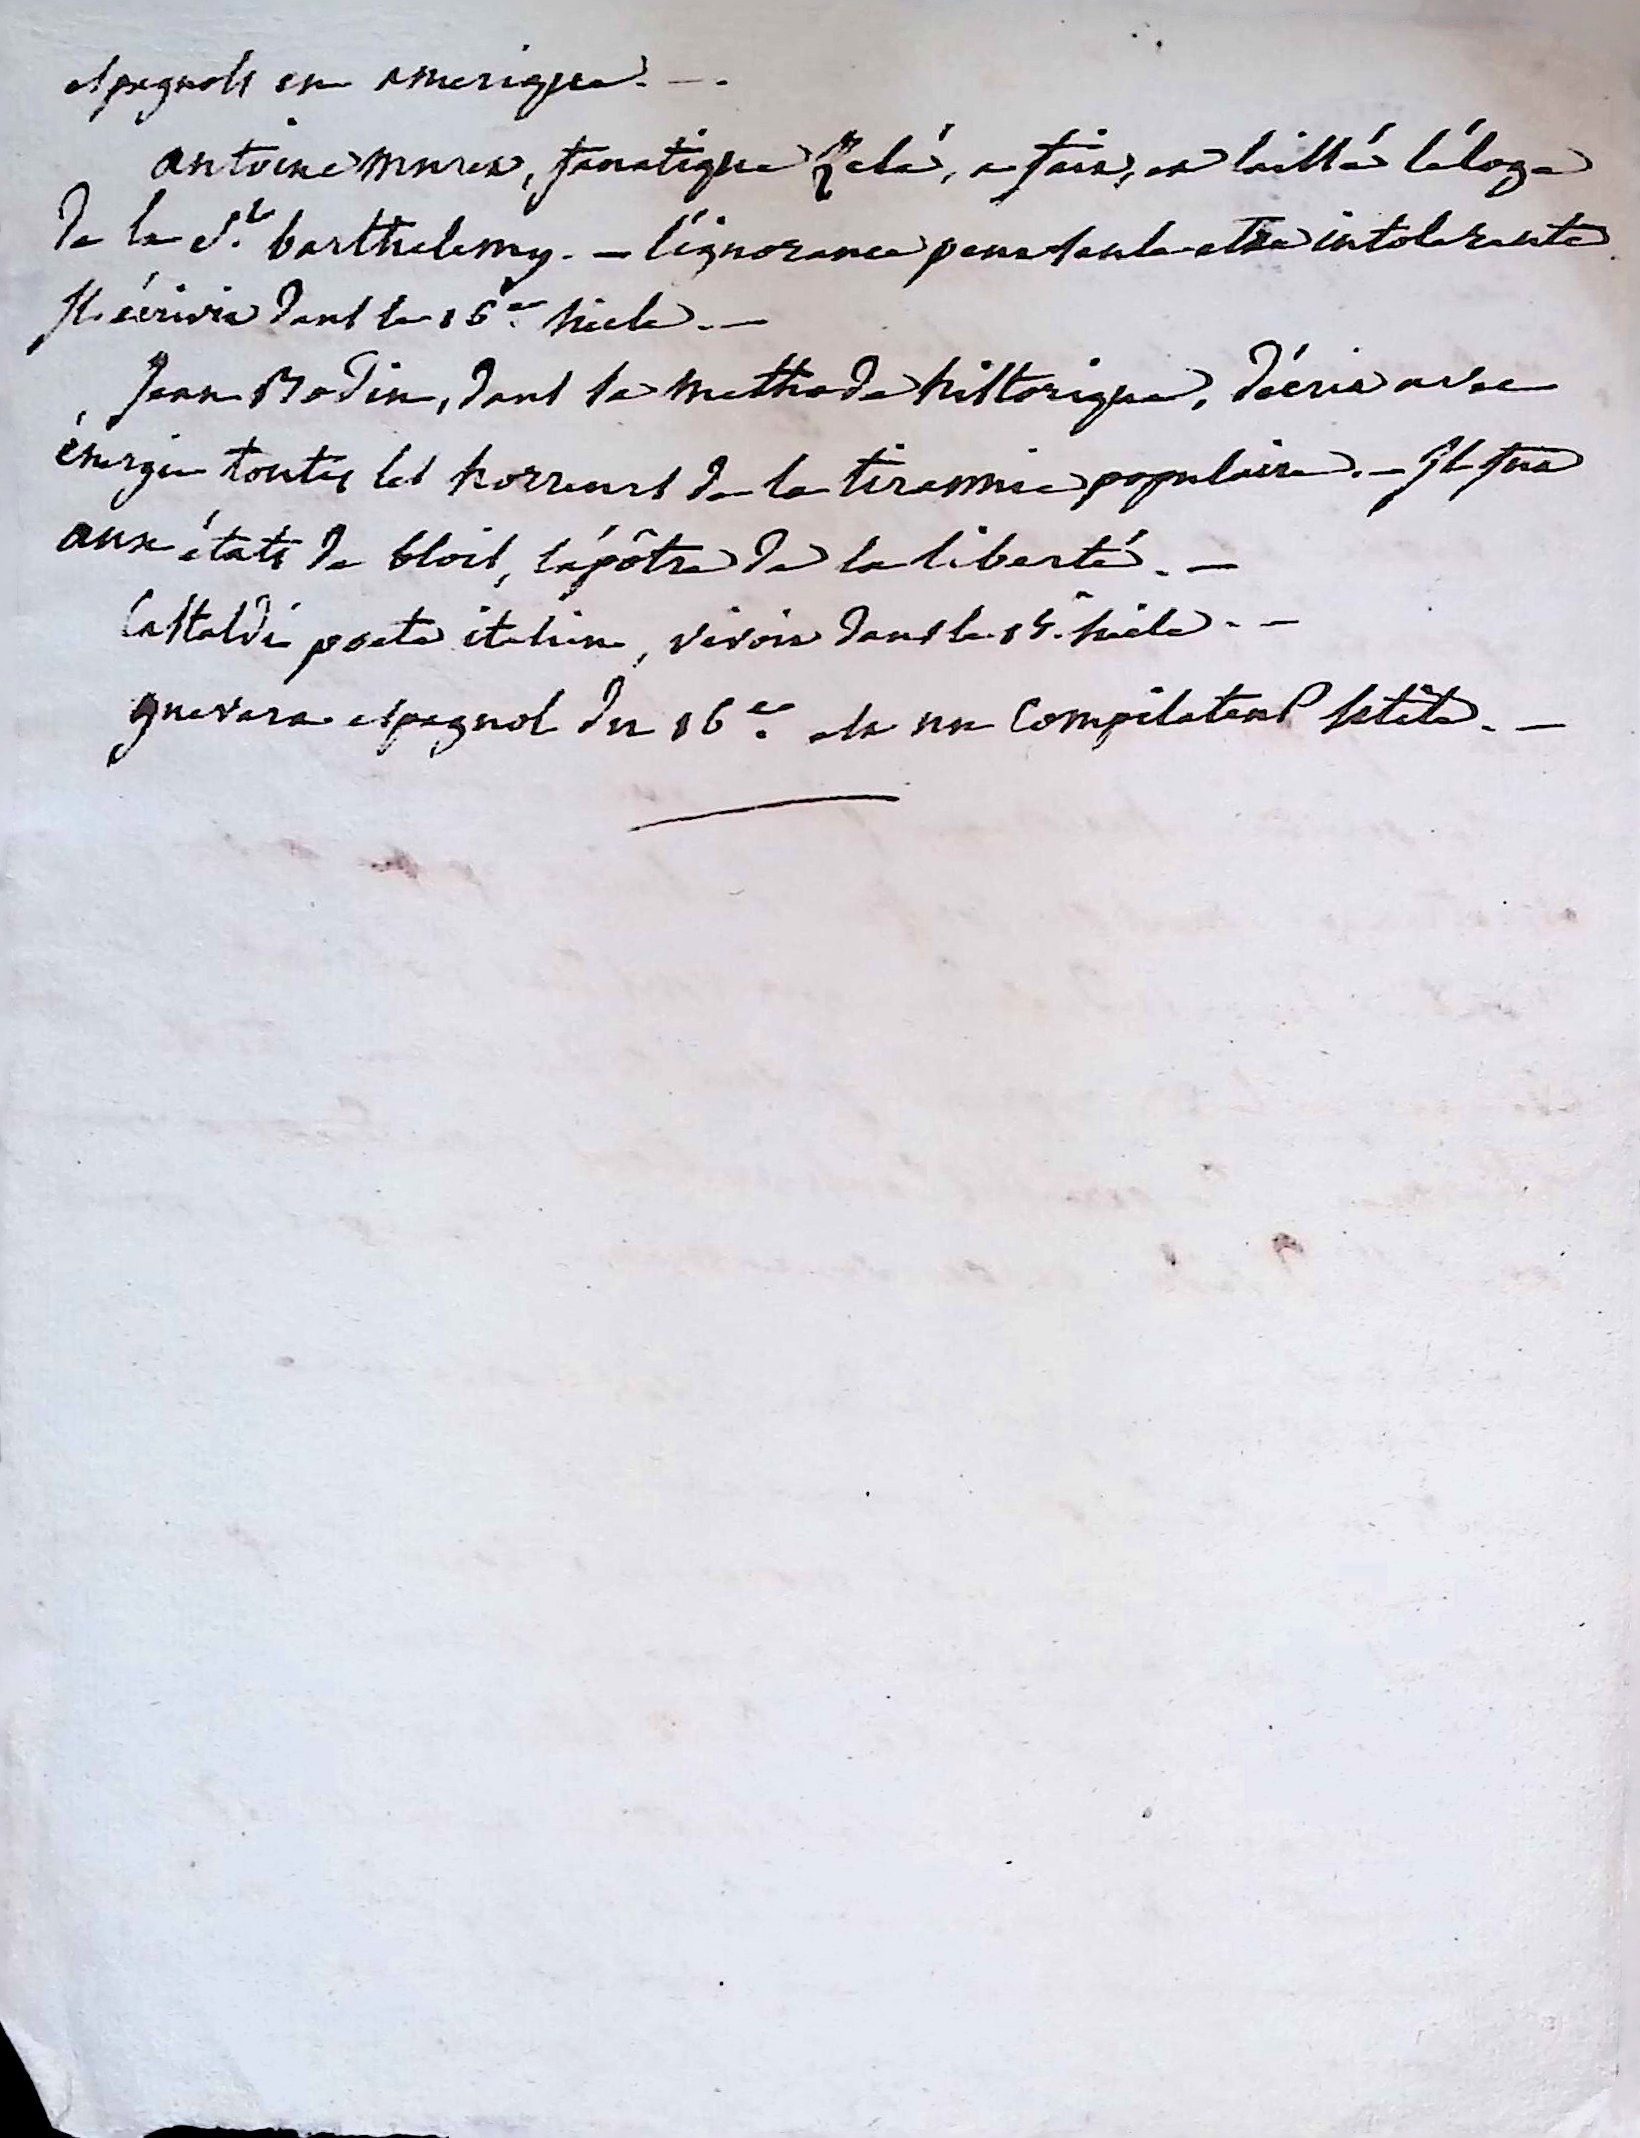 espagnols en amerique. —.
antoine muret, fanatique Zelé, a fait, et laissé l'éloge
de la St. barthelemy. — l'ignorance peut seule etre intolerante
Il écrivit dans le 16e. siecle. —
Jean Bodin, dans sa methode historique, décrit avec
énergie toutes les horreurs de la tirannie populaire. — Il fut
aux états de blois, l'apôtre de la liberté. —
Castaldi poete italien, vivoit dans le 15e. siecle. —
guevara espagnol du 16e. est un Compilateur